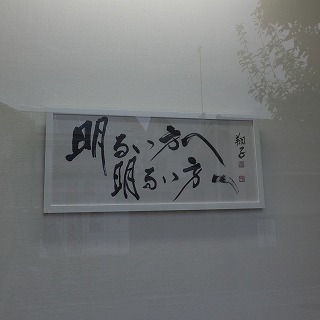 明るい方へ
明るい方へ
翔子